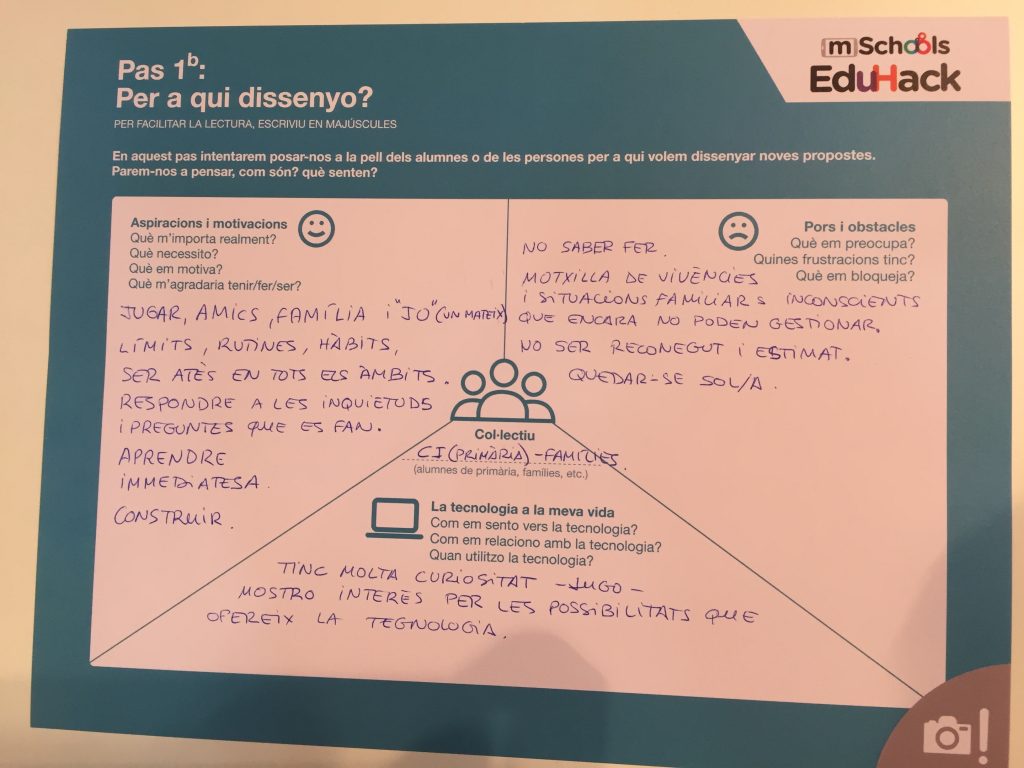 Pas 1b:
Per a qui dissenyo?
PER FACILITAR LA LECTURA, ESCRIVIU EN MAJÚSCULES
mSchools
EduHack
En aquest pas intentarem posar-nos a la pell dels alumnes o de les persones per a qui volem dissenyar noves propostes.
Parem-nos a pensar, com són? què senten?
Aspiracions i motivacions
Què m'importa realment?
Què necessito?
Què em motiva?
Què m'agradaria tenir/fer/ser?
JUGAR, AMICS, FAMÍLIA I "JO" (UN MATEIX)
LÍMITS, RUTINES, HÀBITS,
SER ATÈS EN TOTS ELS ÀMBITS.
RESPONDRE A LES INQUIETUDS
I PREGUNTES QUE ES FAN.
APRENDRE
IMMEDIATESA.
CONSTRUIR.
Pors i obstacles
Què em preocupa?
Quines frustracions tinc?
Què em bloqueja?
NO SABER FER.
MOTXILLA DE VIVÈNCIES
I SITUACIONS FAMILIARS INCONSCIENTS
QUE ENCARA NO PODEN GESTIONAR.
NO SER RECONEGUT I ESTIMAT.
QUEDAR-SE SOL/A.
Col·lectiu
CI (PRIMÀRIA) - FAMÍLIES.
(alumnes de primària, famílies, etc.)
La tecnologia a la meva vida
Com em sento vers la tecnologia?
Com em relaciono amb la tecnologia?
Quan utilitzo la tecnologia?
TINC MOLTA CURIOSITAT - JUGO -
MOSTRO INTERÈS PER LES POSSIBILITATS QUE
OFEREIX LA TEGNOLOGIA.